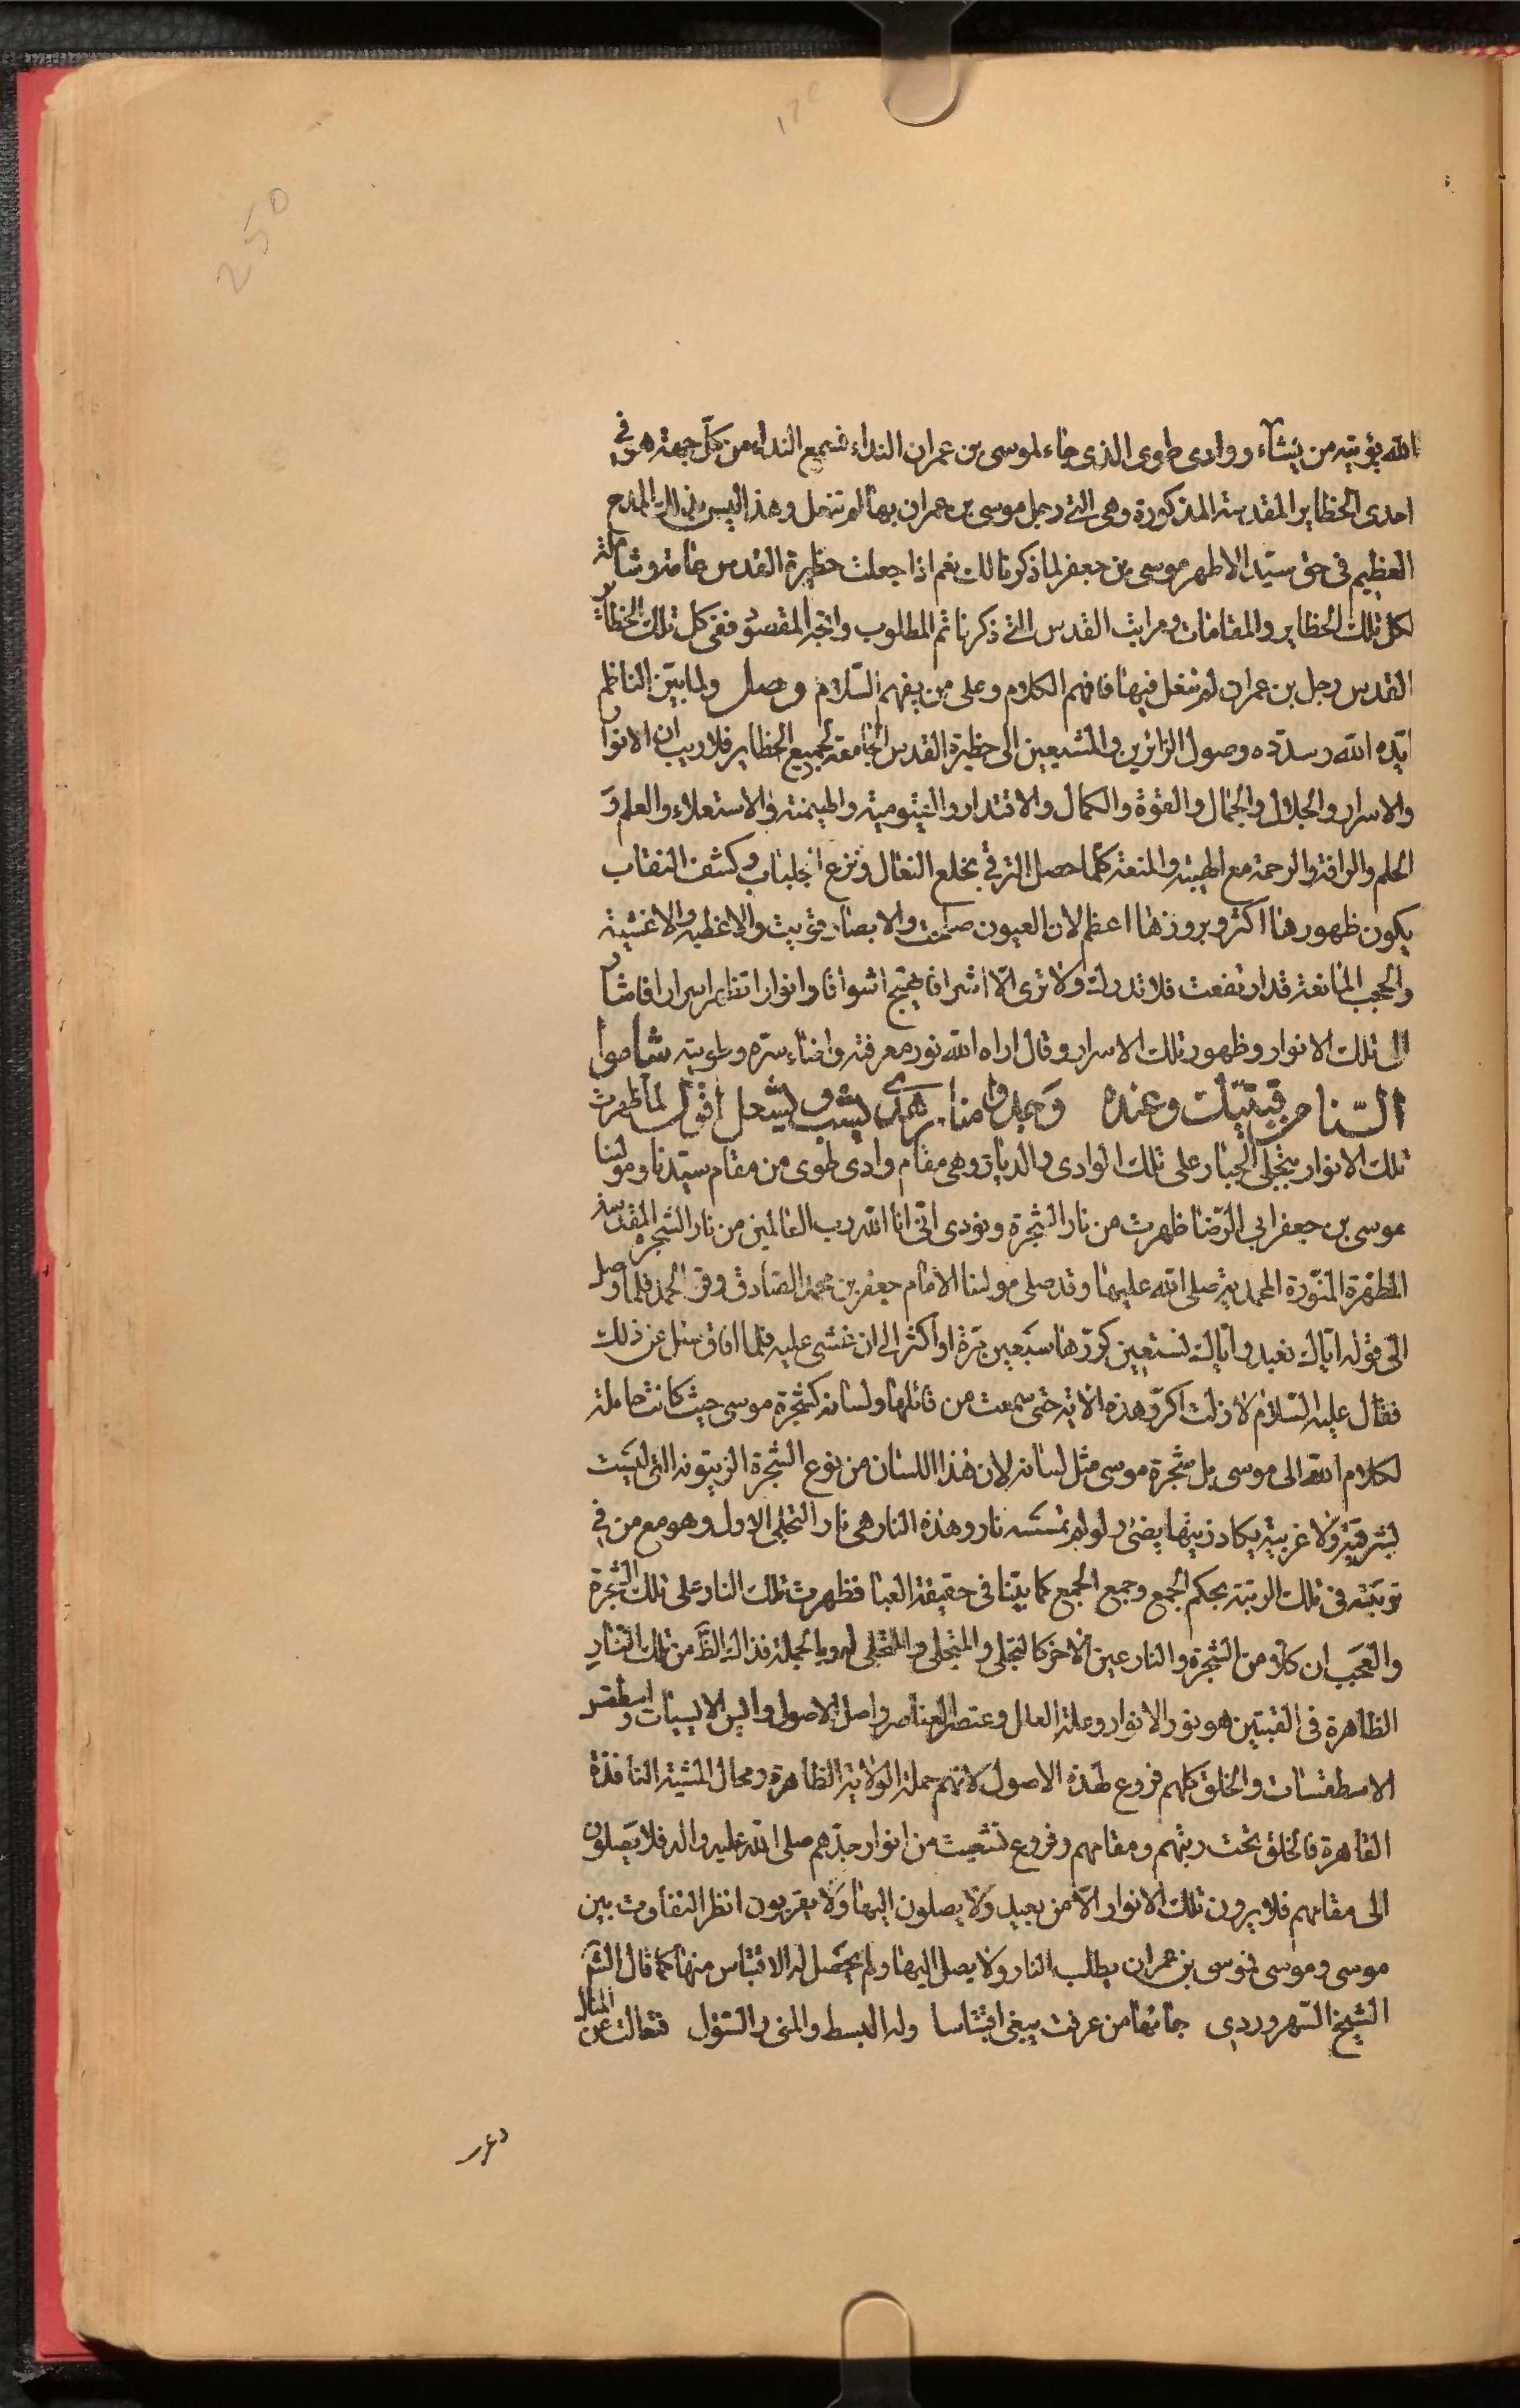 الله يؤتيه من يشآء ووادى طوى الذى جاء لموسى بن عمران النداء فسمع النداء من كل جهة هو فى
احدى الحظاير المقدسة المذكورة وهى التى رجل موسى بن عمران بها لم تنعل وهذا ليس بذالك المدح
العظيم فى حق سيد الاطهر موسى بن جعفر لما ذكرنا لك نعم اذا جعلت حظيرة القدس عامة وشاملة
لكل تلك الحظاير والمقامات ومراتب القدس التى ذكرنا تم المطلوب واتجه المقصود ففى كل تلك الحظاير
القدس رجل بن عمران لم تنعل فيها فافهم الكلام وعلى من يفهم السلام وصل ولما بين الناظم
ايده الله وسدده وصول الزائرين والمشيعين الى حظيرة القدس الجامعة لجميع الحظاير فلا ريب ان الانوار
والاسرار والجلال والجمال والقوة والكمال والاقتدار والقيومية والهيمنة والاستعلاء والعلم و
الحلم والرافة والرحمة مع الهيبة والمنعة كلما حصل الترقى بخلع النعال ونزع الجلباب وكشف النقاب
يكون ظهورها اكثر وبروزها اعظم لان العيون صلحت والابصار قويت والاغطية والاغشية
والحجب المانعة قد ارتفعت فلا تدرك ولا ترى الا اشراقا يهيج اشواقا وانوارا تظهر اسرارا فاشار
الى تلك الانوار وظهور تلك الاسرار وقال اراه الله نور معرفته واضاء سره وطويته شاهدوا
النار من قبتيك وعنده وجدوا منار هدى يشب ويشعل اقول لما ظهرت
تلك الانوار بتجلى الجبار على تلك الوادى والديار وهى مقام وادى طوى من مقام سيدنا ومولينا
موسى بن جعفر ابى الرضا ظهرت من نار الشجرة ونودى انى انا الله رب العالمين من نار الشجرة المقدسة
المطهرة المنورة المحمدية صلى الله عليهما وقد صلى مولنا الامام جعفر بن محمد الصادق وقرء الحمد فلما وصل
الى قوله اياك نعبد واياك نستعين كررها سبعين مرة او اكثر الى ان غشى عليه فلما افاق سئل عن ذلك
فقال عليه السلام لا زلت اكرر هذه الاية حتى سمعت من قائلها ولسانه كشجرة موسى حيث كانت حاملة
لكلام الله الى موسى بل شجرة موسى مثل لسانه لان هذا اللسان من نوع الشجرة الزيتونه التى ليست
بشرقية ولا غربية يكاد زيتها يضئ ولو لم تمسسه نار وهذه النار هى نار التجلى الاول وهو مع من فى
توبته فى تلك الرتبة بحكم الجمع وجمع الجمع كما بينا فى حقيقة العبا فظهرت تلك النار على تلك الشجرة
والعجب ان كلا من الشجرة والنار عين الاخر كالتجلى والمتجلى والمتجلى له وبالجملة فذالك الظ من تلك النار
الظاهرة فى القبتين هو نور الانوار وعلة العلل وعنصر العناصر واصل الاصول وايس الايسيات واسطقس
الاسطقسات والخلق كلهم فروع لهذه الاصول لانهم حملة الولاية الظاهرة ومحال المشية النافذة
القاهرة فالخلق تحت رتبهم ومقامهم وفروع تشعبت من انوار جدهم صلى الله عليه واله فلا يصلون
الى مقامهم فلا يرون تلك الانوار الا من بعيد ولا يصلون اليها ولا يقربون انظر التفاوت بين
موسى وموسى فموسى بن عمران يطلب النار ولا يصل اليها ولم يحصل له الاقتباس منها كما قال الش
الشيخ السهروردى جائها من عرفت يبغى اقتباسا وله البسط والمنى والسؤل فتعالت عن المنال